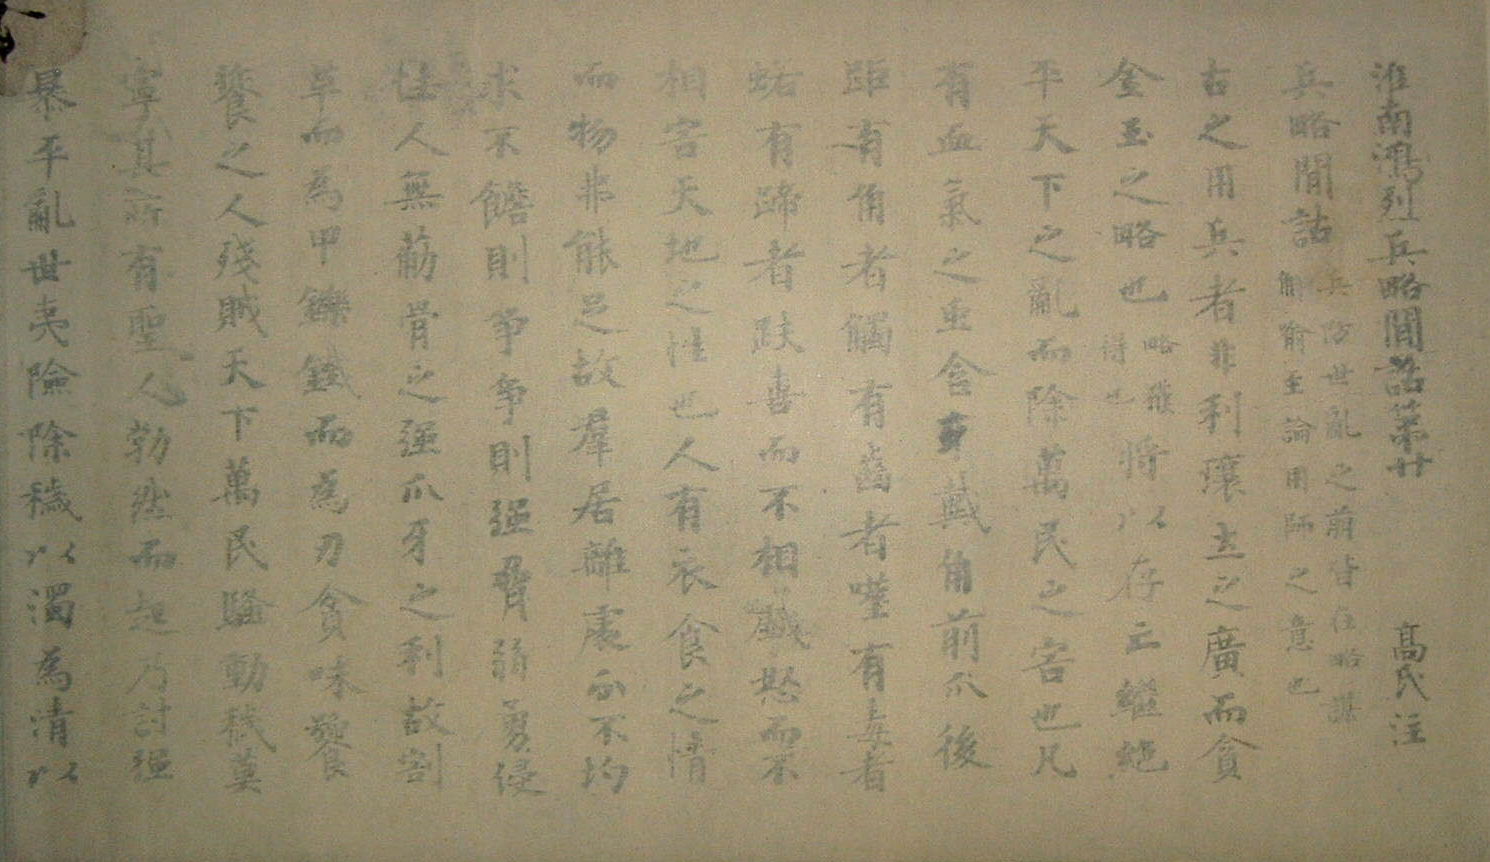 淮南鴻烈兵略閒詁第廿 高氏注
兵略閒詁 兵防世亂之萌皆在略謀解喻至論用師之意也
古之用兵者非利壤土之廣而貪
金玉之略也略獲得也將以存亡繼絕
平天下之亂而除萬民之害也凡
有血氣之虫含牙戴角前爪後
距有角者觸有齒者噬有毒者
蛞有蹄者趹喜而不相戲怒而不
相害天地之性也人有衣食之情
而物非能足故羣居雜處分不均
求不饍則爭爭則强脅弱勇侵
怯人無荕骨之强爪牙之利故割
革而為甲鑠鐵而為刃貪味饕
餮之人殘賊天下萬民騷動穢莫
寧其所有聖人勃然而起乃討强
暴平亂世夷險除穢以濁為清以